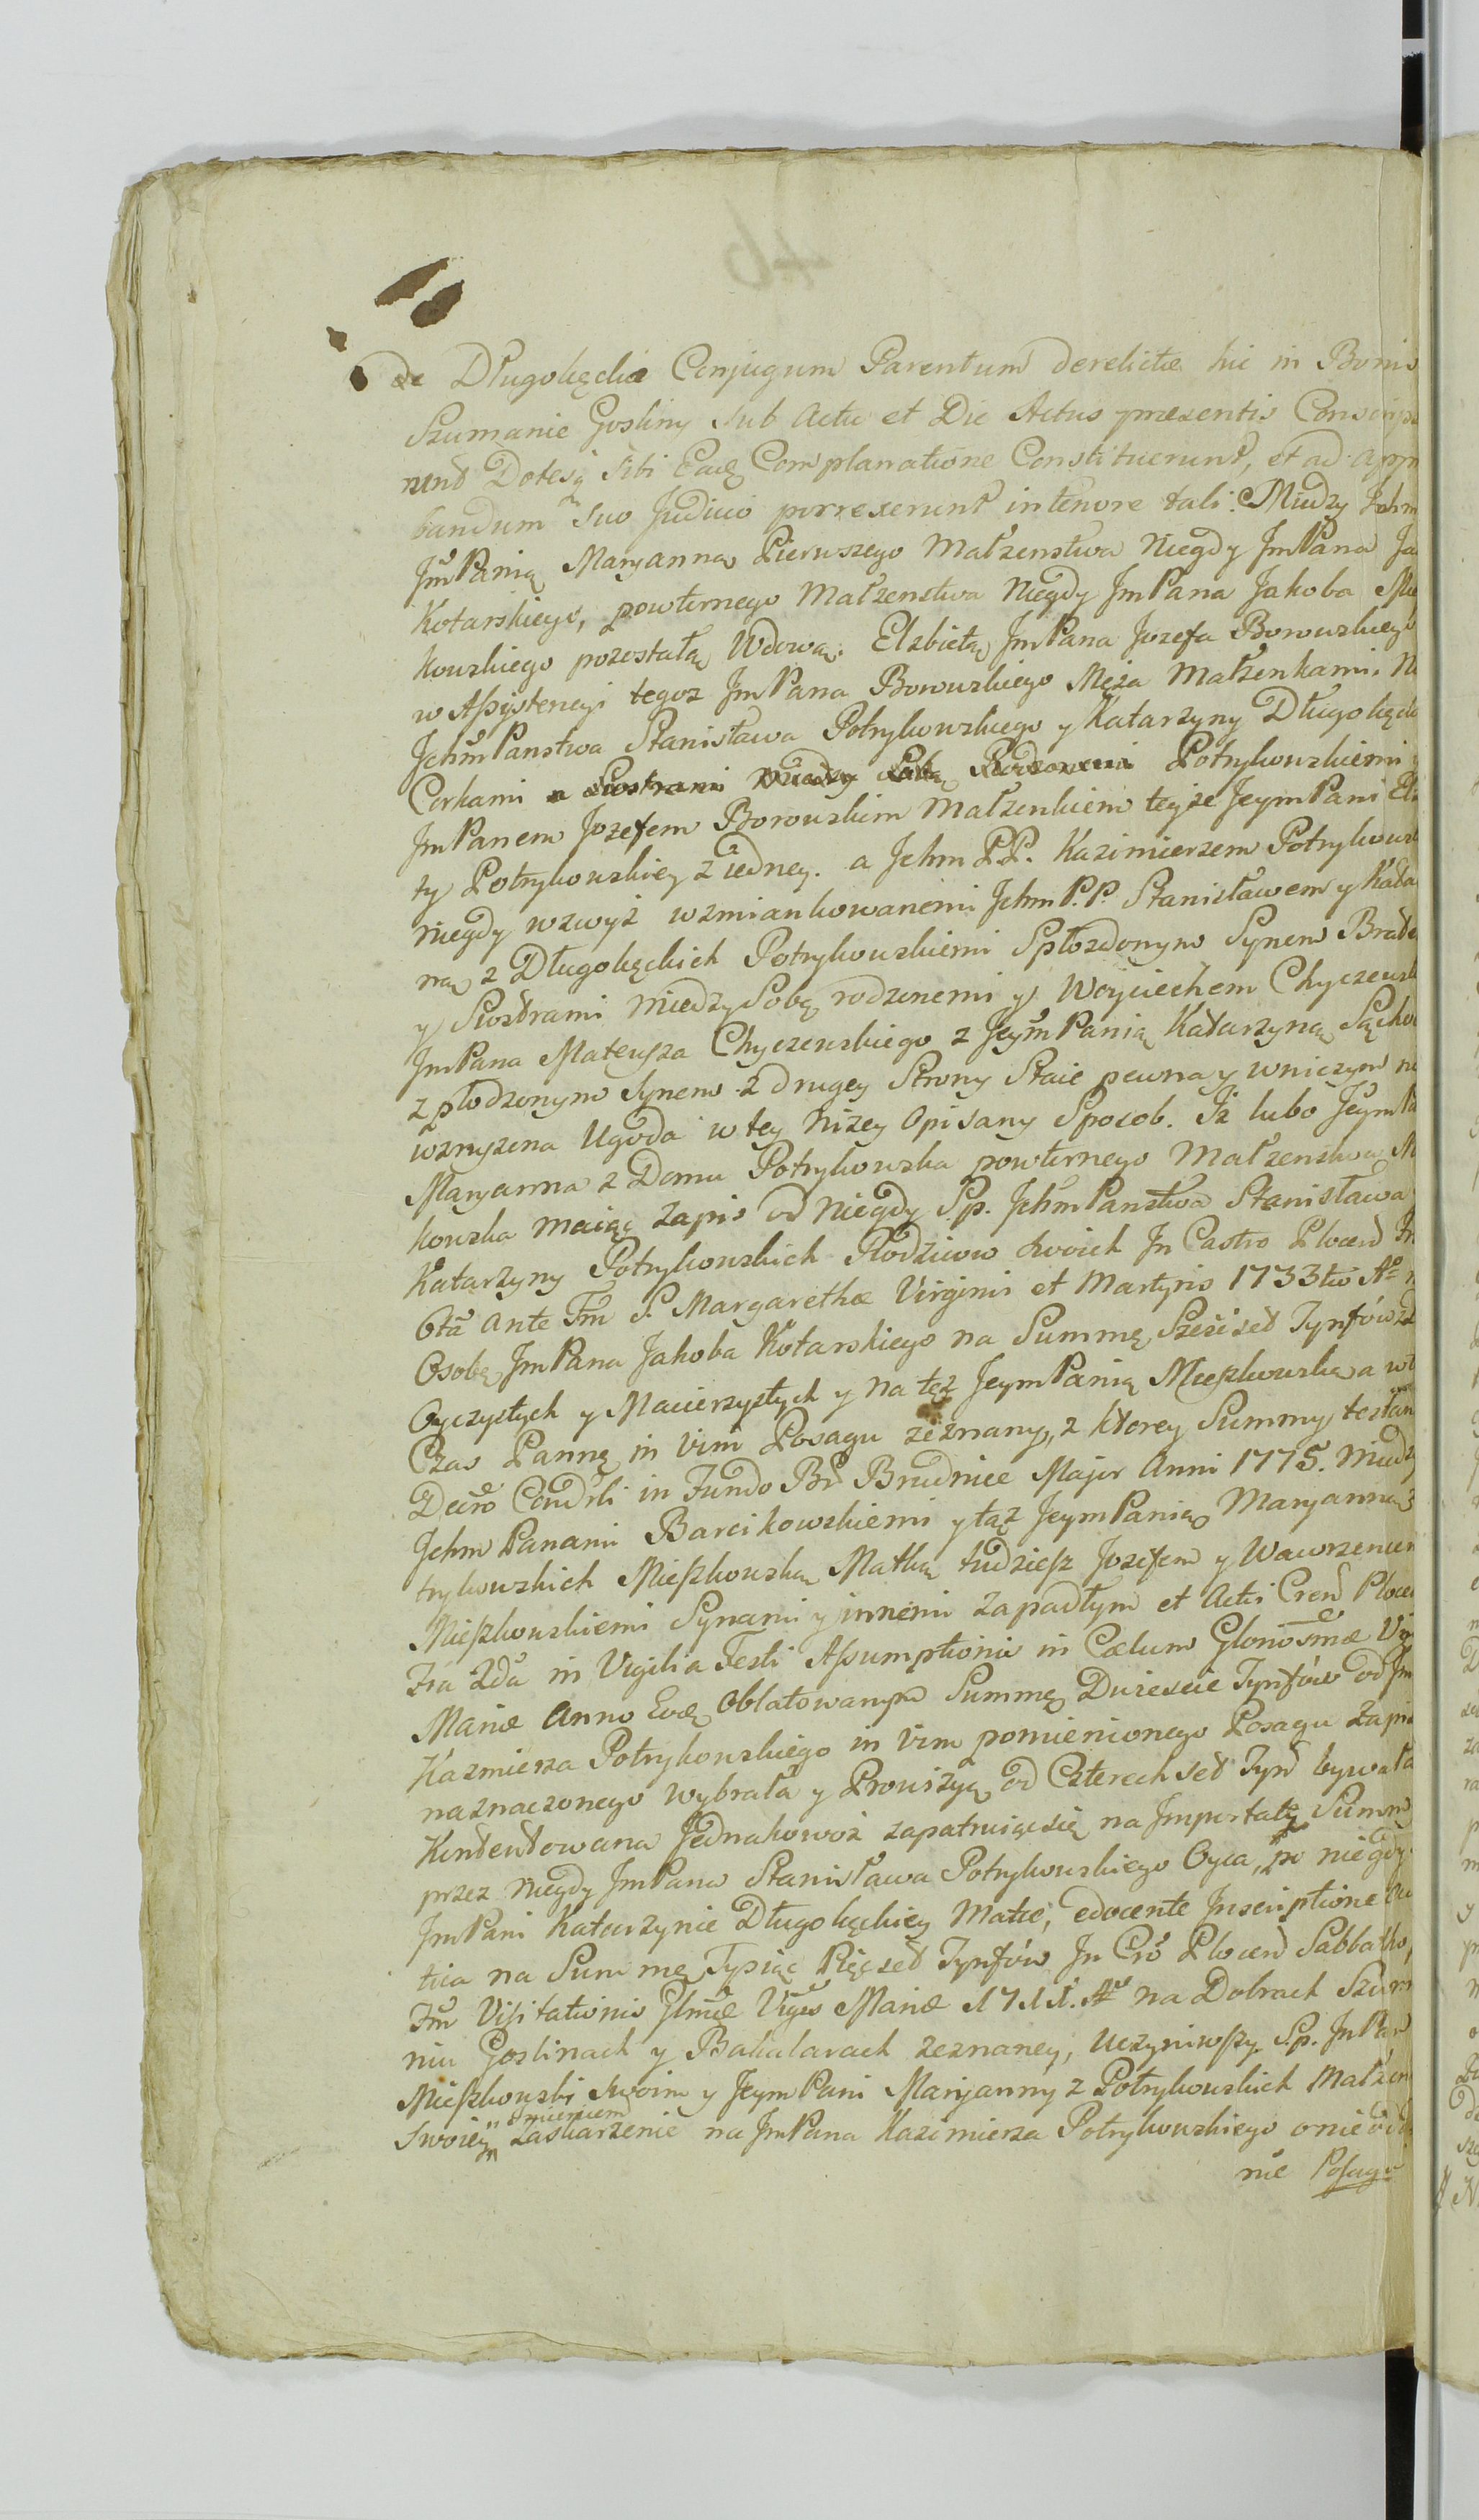 de Długołęckie Conjugum Parentum derelictæ hic in Bonis
Szumanie Gosliny sub Actu et Die Actus præsentis Conscrip
runt Dotesq sibi Eaq Complanatione Constituerunt, et ad appro
bandum suo Judicio porrexerunt in tenore tali. Miedzy Jchm
JmPanią Maryanną Pierwszego Małzenstwa Niegdy JmPana Ja
Kotarskiego, powturnego Małzenstwa Niegdy JmPana Jakoba Mie
kowskiego pozostałą Wdową. Elzbietą JmPana Jozefa Borowskiego
w Assystencyi tegoz JmPana Borowskiego Męża Małzenkami. Ni
JchmPanstwa Stanisława Potrykowskiego y Katarzyny Długołęck
Corkami a Siostrami Miedzy Sobą Rodzonemi Potrykowskiemi y
JmPanem Jozefem Borowskim Małzenkiem teyze JeymPani Elz
ty Potrykowskiey z iedney. a Jchm PP. Kazimierzem Potrykows
niegdy wzwyż wzmiankowanemi Jchm P.P. Stanisławem y Kata
ną z Długołęckich Potrykowskiemi Spłozdonym Synem Brate
y Siostrami miedzy Sobą rodzonemi y Woyciechem Chyczewsk
JmPana Mateusza Chyczewskiego z JeymPanią Katarzyną Sącho
z płodzonym Synem z drugey Strony Staie pewna y wniczym ni
wzruszena Ugoda w tey nizey Opisany Sposob. Iż lubo Jeym Pa
Maryanna z Domu Potrykowska powturnego Małzenstwa Mi
kowska maiąc Zapis od Niegdy S.p. JchmPanstwa Stanisława
Katarzyny Potrykowskich Rodzicow swoich Jn Castro Plocen Fr
6ta ante Fm S. Margarethæ Virginis et Martyris 1733tio A°
Osobę JmPana Jakoba Kotarskiego na Summę Sześćset Tynfów zd
Oyczystych y Macierzystych y na tęż JeymPanią Mieszkowską a wt
Czas Pannę in vim Posagu zeznany, z ktorey Summy testan
Decro Condrli in Fundo Br Brudnice Major Anni 1775. miedz
Jchm Panami Barcikowskiemi y taż JeymPanią Maryanną z
trykowskich Mieszkowską Matką tudziesz Jozefem y Wawrzencem
Mieszkowskiemi Synami y innemi zapadłym et Actis Cren Plocen
Fra 2da in Vigilia Festi Assumptionis in Cælum Gloriosmæ Vir
Mariæ Anno Eoq Oblatowanym Summę Dwiescie Tynfów od Jm
Kazmierza Potrykowskiego in vim pomienionego Posagu Zapis
naznaczonego wybrała y Prowizyą od Czterechset Tyn bywała
Kontentowana Jednakowoż zapatruiąc się na Importatę Summ
przez niegdy JmPana Stanisława Potrykowskiego Oyca, po niegdy
JmPani Katarzynie Długołęckiey Matce, edocente Jnscriptione
tica na Summę Tysiąc Pięcset Tynfów Jn Cro Plocen Sabbatho
Fm Visitationis Glmæ Virgs Mariæ 1711. A° na Dobrach Szum
niu Goslinach y Bakalarach zeznaney, uczyniwszy S.p. JnPan
Mieszkowski swoim y JeymPani Maryanny z Potrykowskich Małzen
swoiey Jmieniem Zaskarzenie na JmPana Kazimierza Potrykowskiego o nie od
nie Posagu